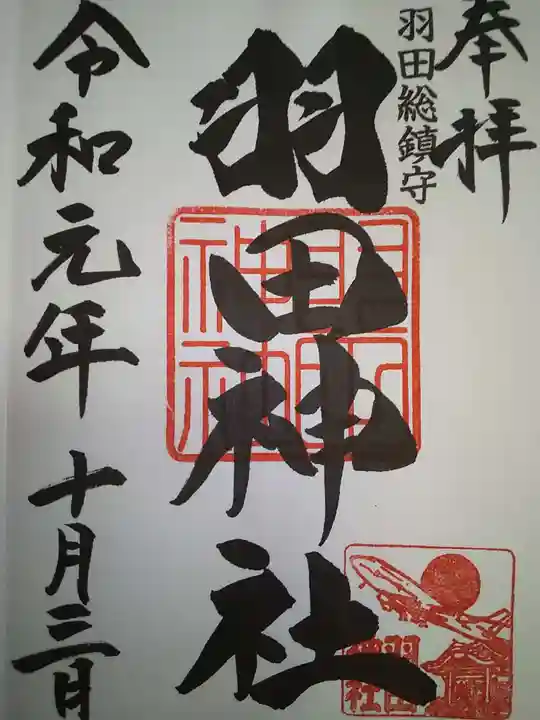 奉拝
羽田総鎮守
羽田神社
令和元年 十月三日
羽田神社
羽田
神社